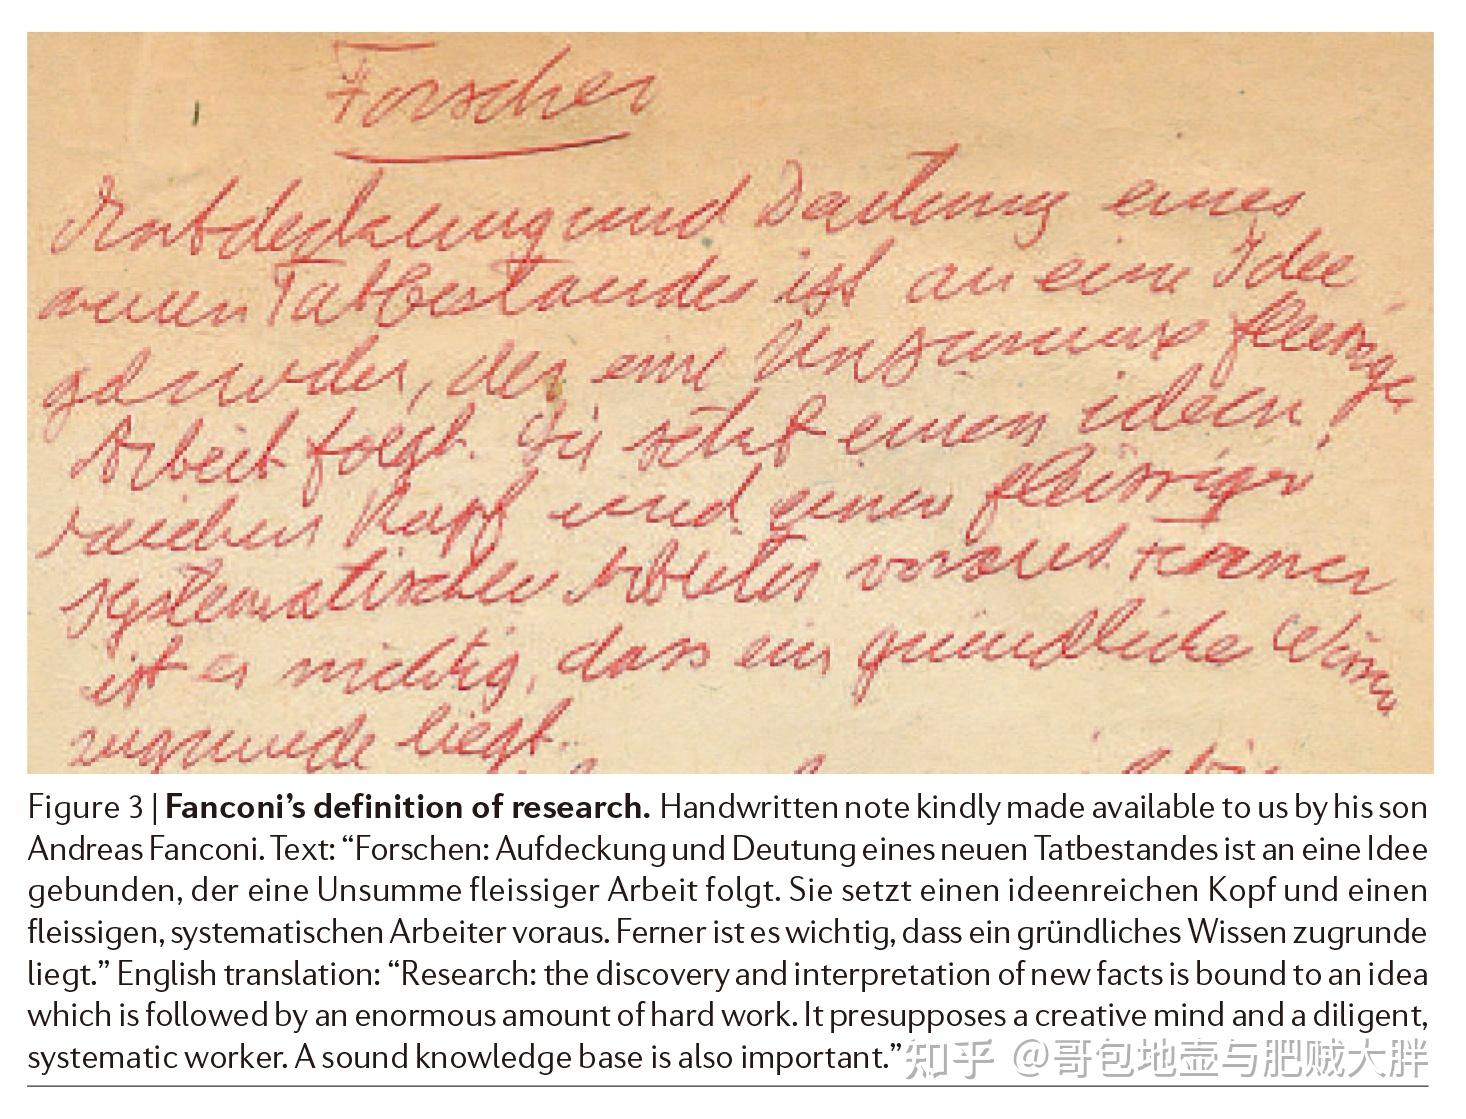 Forschen
Entdeckung und Deutung eines
neuen Tatbestandes ist an eine Idee
gebunden, der eine Unsumme fleissiger
Arbeit folgt. Sie setzt einen ideen-
reichen Kopf und einen fleissigen
systematischen Arbeiter voraus. Ferner
ist es wichtig, dass ein gründliches Wissen
zugrunde liegt.
Figure 3 | Fanconi’s definition of research. Handwritten note kindly made available to us by his son
Andreas Fanconi. Text: “Forschen: Aufdeckung und Deutung eines neuen Tatbestandes ist an eine Idee
gebunden, der eine Unsumme fleissiger Arbeit folgt. Sie setzt einen ideenreichen Kopf und einen
fleissigen, systematischen Arbeiter voraus. Ferner ist es wichtig, dass ein gründliches Wissen zugrunde
liegt.” English translation: “Research: the discovery and interpretation of new facts is bound to an idea
which is followed by an enormous amount of hard work. It presupposes a creative mind and a diligent,
systematic worker. A sound knowledge base is also important.”
知乎 @哥包地壶与肥贼大胖